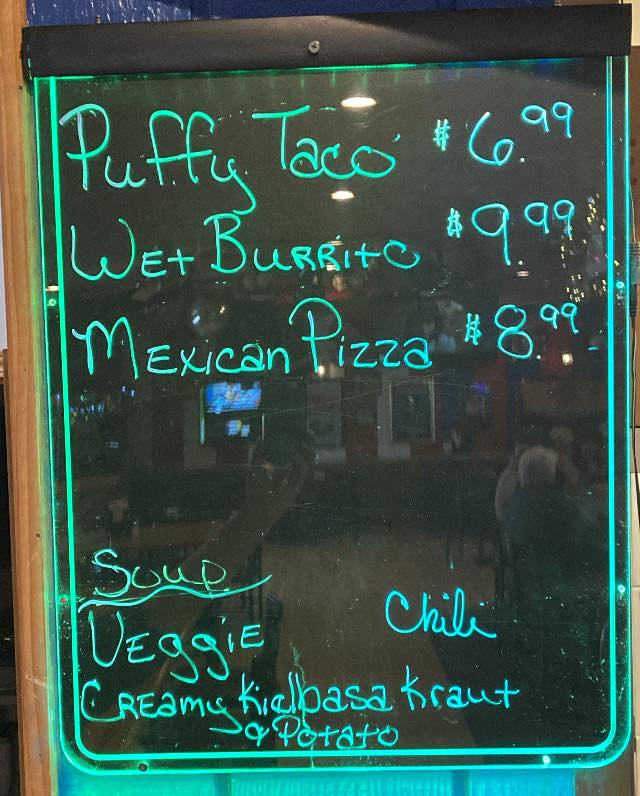 Puffy Taco $6.99
Wet Burrito $9.99
Mexican Pizza $8.99
Soup
Veggie Chili
Creamy Kielbasa Kraut
& Potato